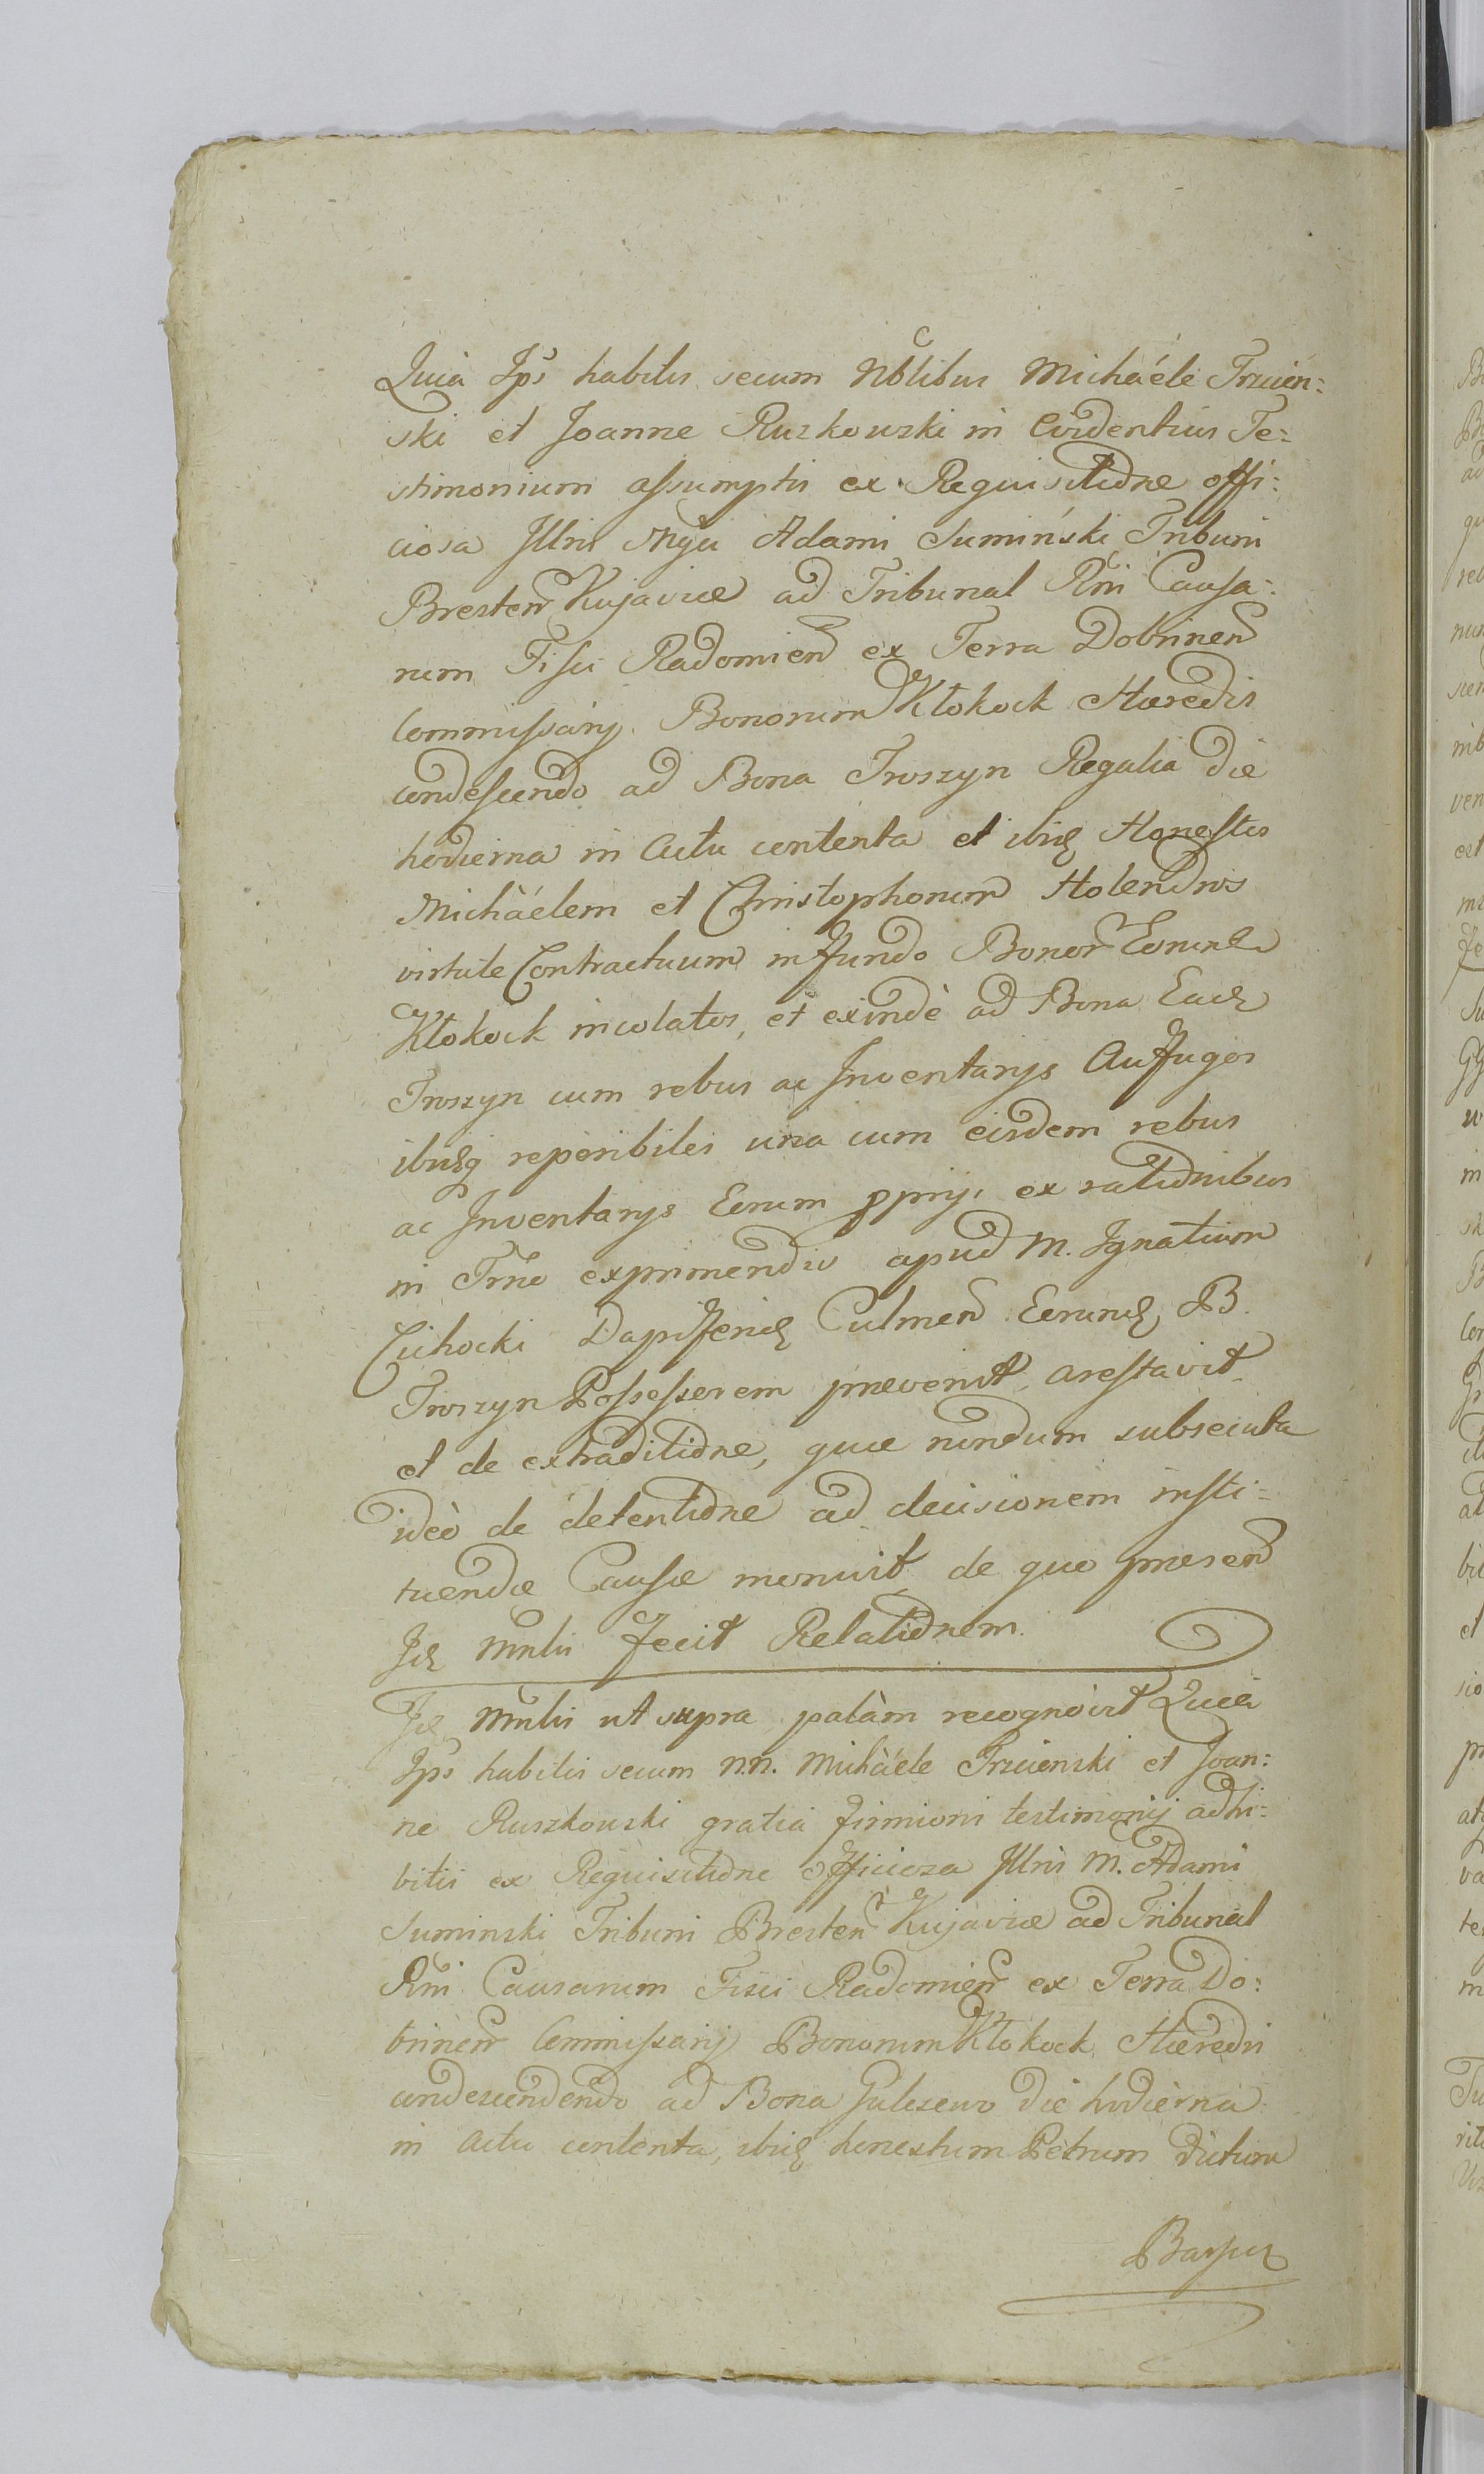 Quia Ips habitis secum Nblibus Michaéle Trzcien:
ski et Joanne Ruszkowski in Evidentius Te:
stimonium assumptis ex Requisitione offi:
ciosa Illris Mgci Adami Sumiński Tribuni
Bresten Kujaviæ ad Tribunal Rni Causa:
rum Fisci Radomien ex Terra Dobrinen
Commissarij. Bonorum Kłokock Hæredis
condescendo ad Bona Troszyn Regalia die
hodierna in Actu contenta et ibiq Honestos
Michàélem et Christophorum Holendros
virtute Contractuum in fundo Bonor Eorund
Kłokock incolatos, et exindè ad Bona Ead
Troszyn cum rebus ac Inventarijs Auffugos
ibidq reperibiles una cum eisdem rebus
ac Inventarijs Eorum pprijs ex rationibus
in Trno exprimendis apud M. Ignatium
Cichocki Dapiferid Culmen Eorund B.
Troszyn Possessorem prævenit, arestavit
et de extraditione, quæ nondum subsecuta
ideò de detentione ad decisionem insti=
tuendæ Causæ monuit, de quo præsen
Id Mnlis fecit Relationem.
Id Mnlis ut supra palàm recognovit Quia
Ips habitis secum N.N. Michàéle Trzcienski et Joan:
ne Ruszkowski gratia firmioris testimonij adhi:
bitis ex Requisitione Officiosa Illris M. Adami
Suminski Tribuni Bresten Kujaviæ ad Tribunal
Rni Causarum Fisci Radomien ex Terra Do:
brinen Commissarij Bonorum Kłokock Hæredis
condescendendo ad Bona Gulszewo die hodierna
in Actu contenta, ibiq honestum Petrum dictum